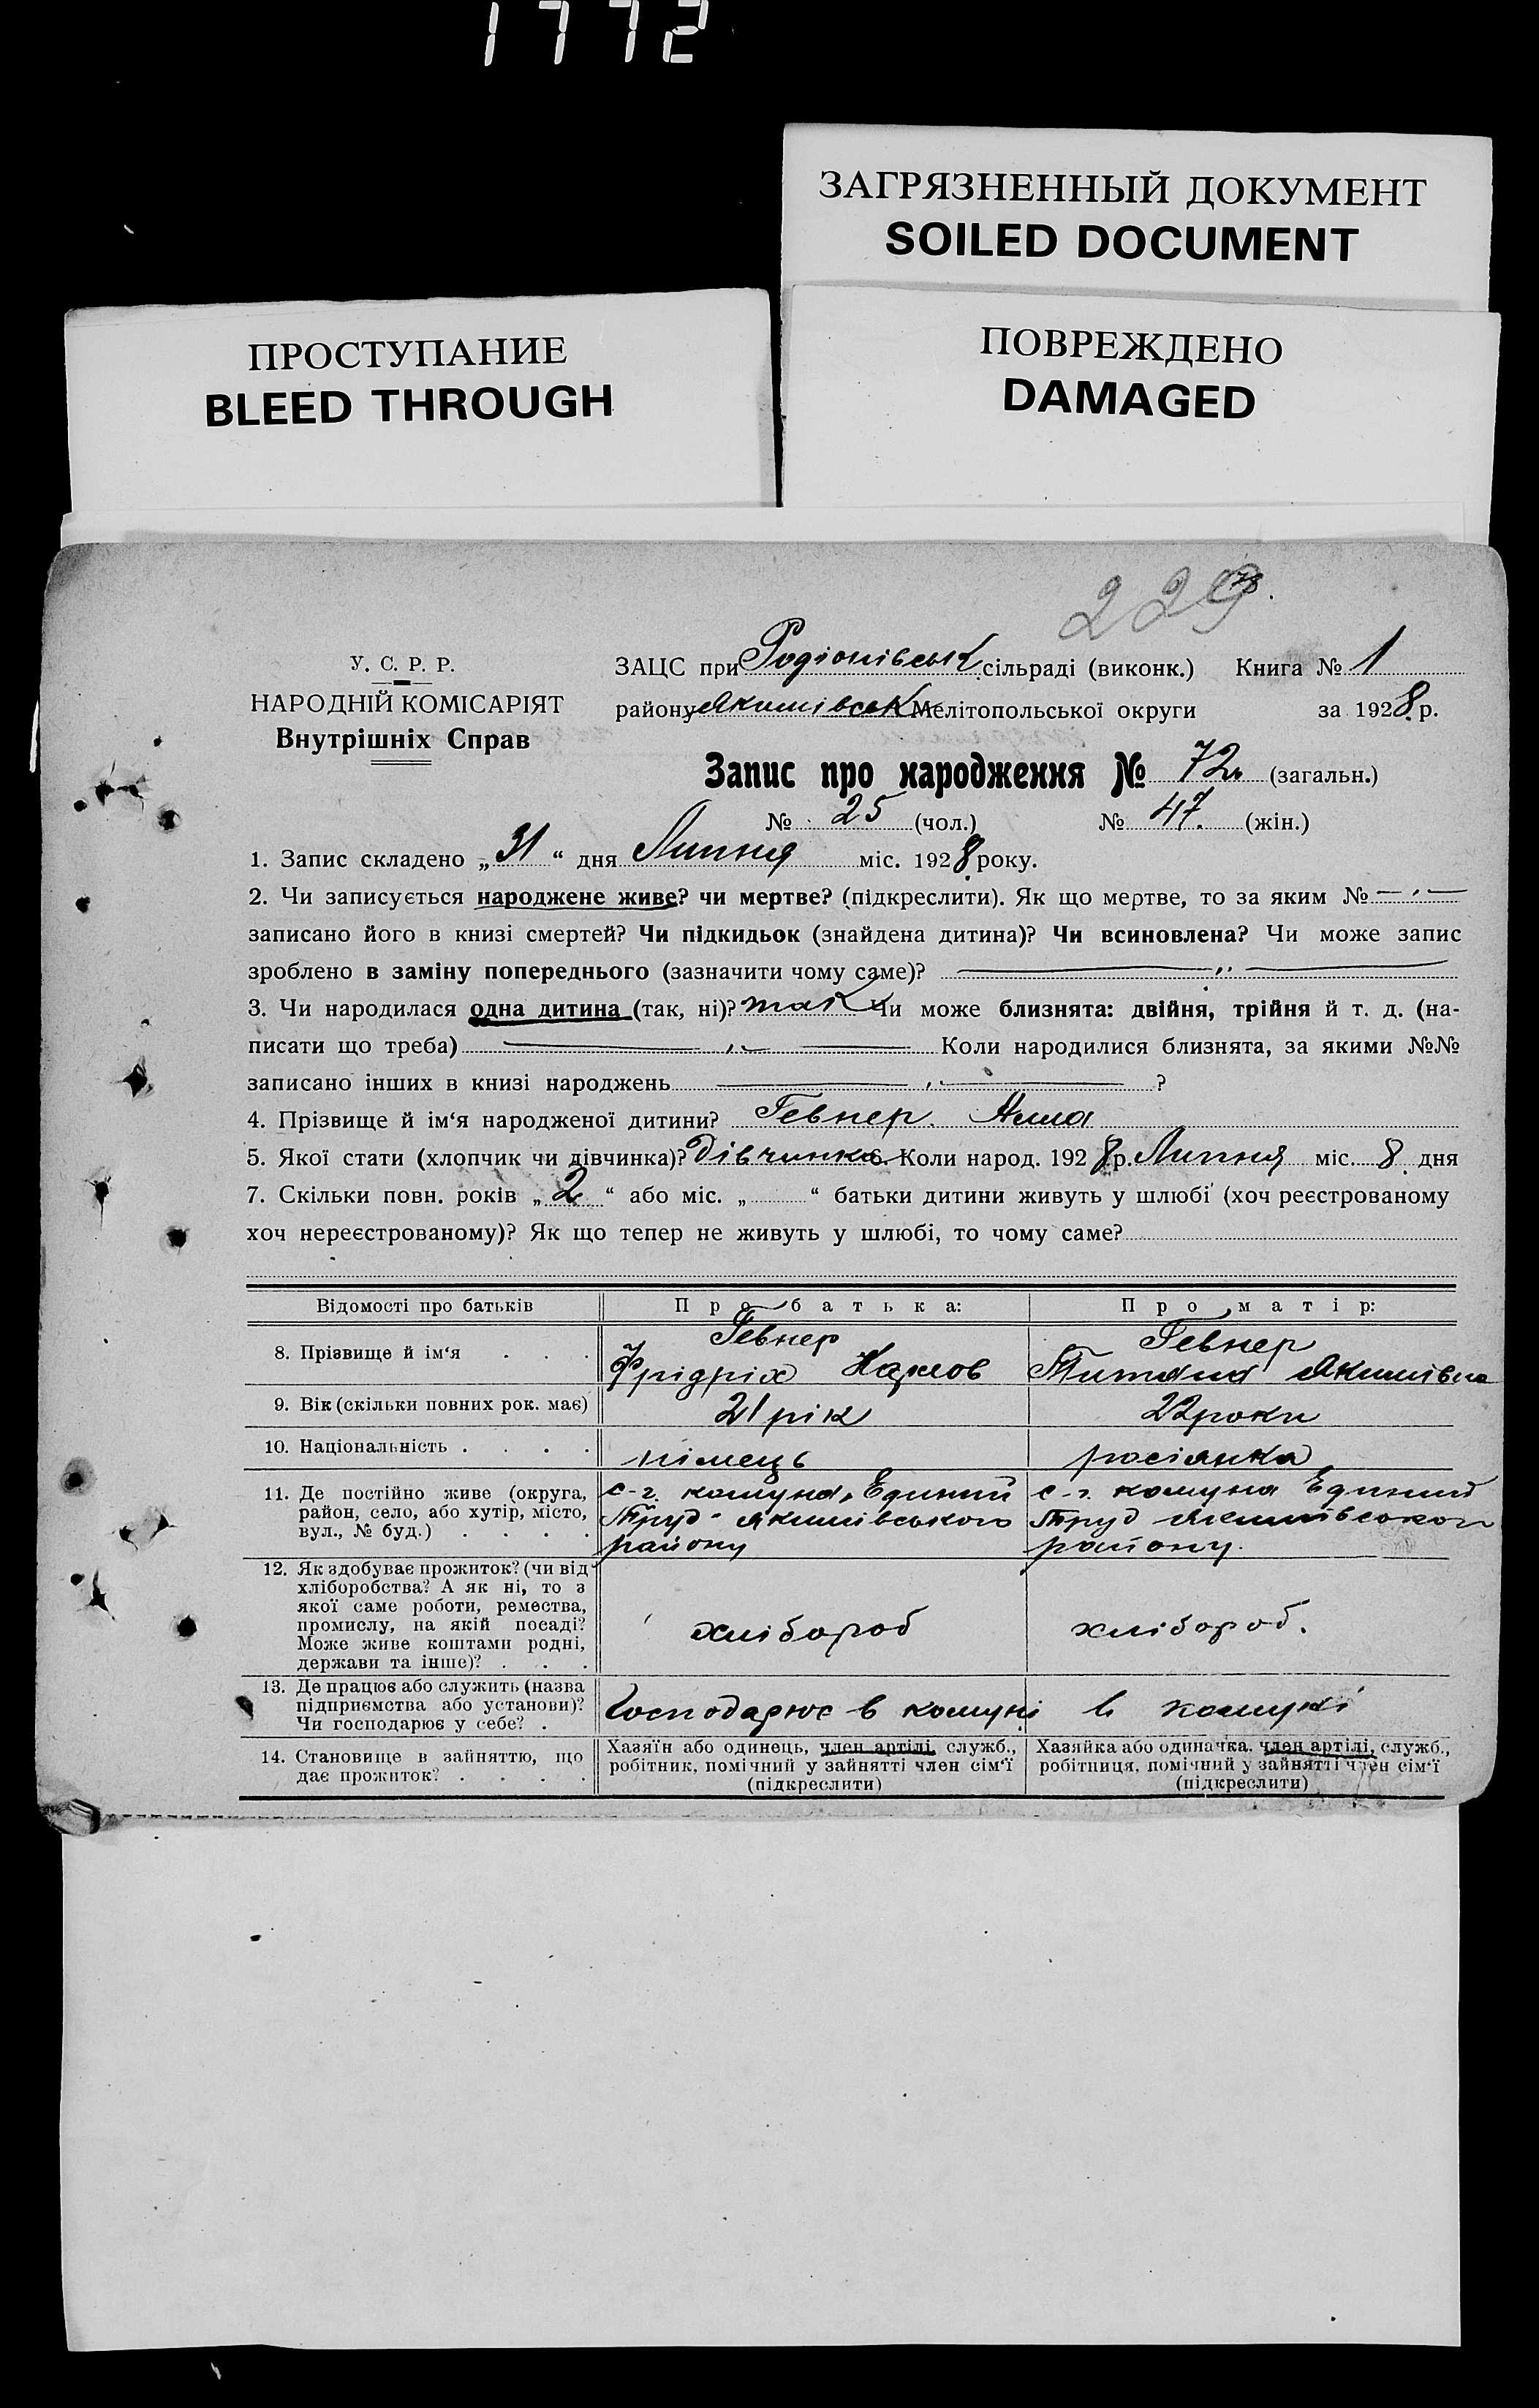 1772
ЗАГРЯЗНЕННЫЙ ДОКУМЕНТ
SOILED DOCUMENT
ПРОСТУПАНИЕ
BLEED THROUGH
ПОВРЕЖДЕНО
DAMAGED
229
78.
У. С. Р. Р.
НАРОДНІЙ КОМІСАРІЯТ
Внутрішніх Справ
ЗАЦС при Родіонівськ сільраді (виконк.) Книга № 1
району Якимівськ Мелітопольської округи за 1928 р.
Запис про народження № 72 (загальн.)
№ 25 (чол.) № 47. (жін.)
1. Запис складено „31“ дня Липня міс. 1928 року.
2. Чи записується народжене живе? чи мертве? (підкреслити). Як що мертве, то за яким №
записано його в книзі смертей? Чи підкидьок (знайдена дитина)? Чи всиновлена? Чи може запис
зроблено в заміну попереднього (зазначити чому саме)?
3. Чи народилася одна дитина (так, ні)? так Чи може близнята: двійня, трійня й т. д. (на-
писати що треба) Коли народилися близнята, за якими №№
записано інших в книзі народжень ?
4. Прізвище й ім‘я народженої дитини? Гевнер. Анна
5. Якої стати (хлопчик чи дівчинка)? Дівчинка 6. Коли народ. 1928 р. Липня міс. 8 дня
7. Скільки повн. років „2“ або міс. „ “ батьки дитини живуть у шлюбі (хоч реєстрованому
хоч нереєстрованому)? Як що тепер не живуть у шлюбі, то чому саме?
Відомості про батьків Про батька: Про матір:
8. Прізвище й ім‘я . . . Гевнер Фрідріх Карлов Гевнер Титяна Якимівна
9. Вік (скільки повних рок. має) 21 рік 22 роки
10. Національність . . . . німець росіянка
11. Де постійно живе (округа,
район, село, або хутір, місто,
вул., № буд.) . . . .
с-г. комуна „Единий
Труд“ Якимівського
району
с-г. комуна Единий
Труд Якимівського
району.
12. Як здобуває прожиток? (чи від
хліборобства? А як ні, то з
якої саме роботи, ремества,
промислу, на якій посаді?
Може живе коштами родні,
держави та інше)? . . .
хлібороб хлібороб.
13. Де працює або служить (назва
підприємства або установи)?
Чи господарює у себе? .
Господарює в комуні в комуні
14. Становище в зайняттю, що
дає прожиток? . . . .
Хазяїн або одинець, член артілі, служб.,
робітник, помічний у зайнятті член сім‘ї
(підкреслити)
Хазяйка або одиначка, член артілі, служб.,
робітниця, помічний у зайнятті член сім‘ї
(підкреслити)